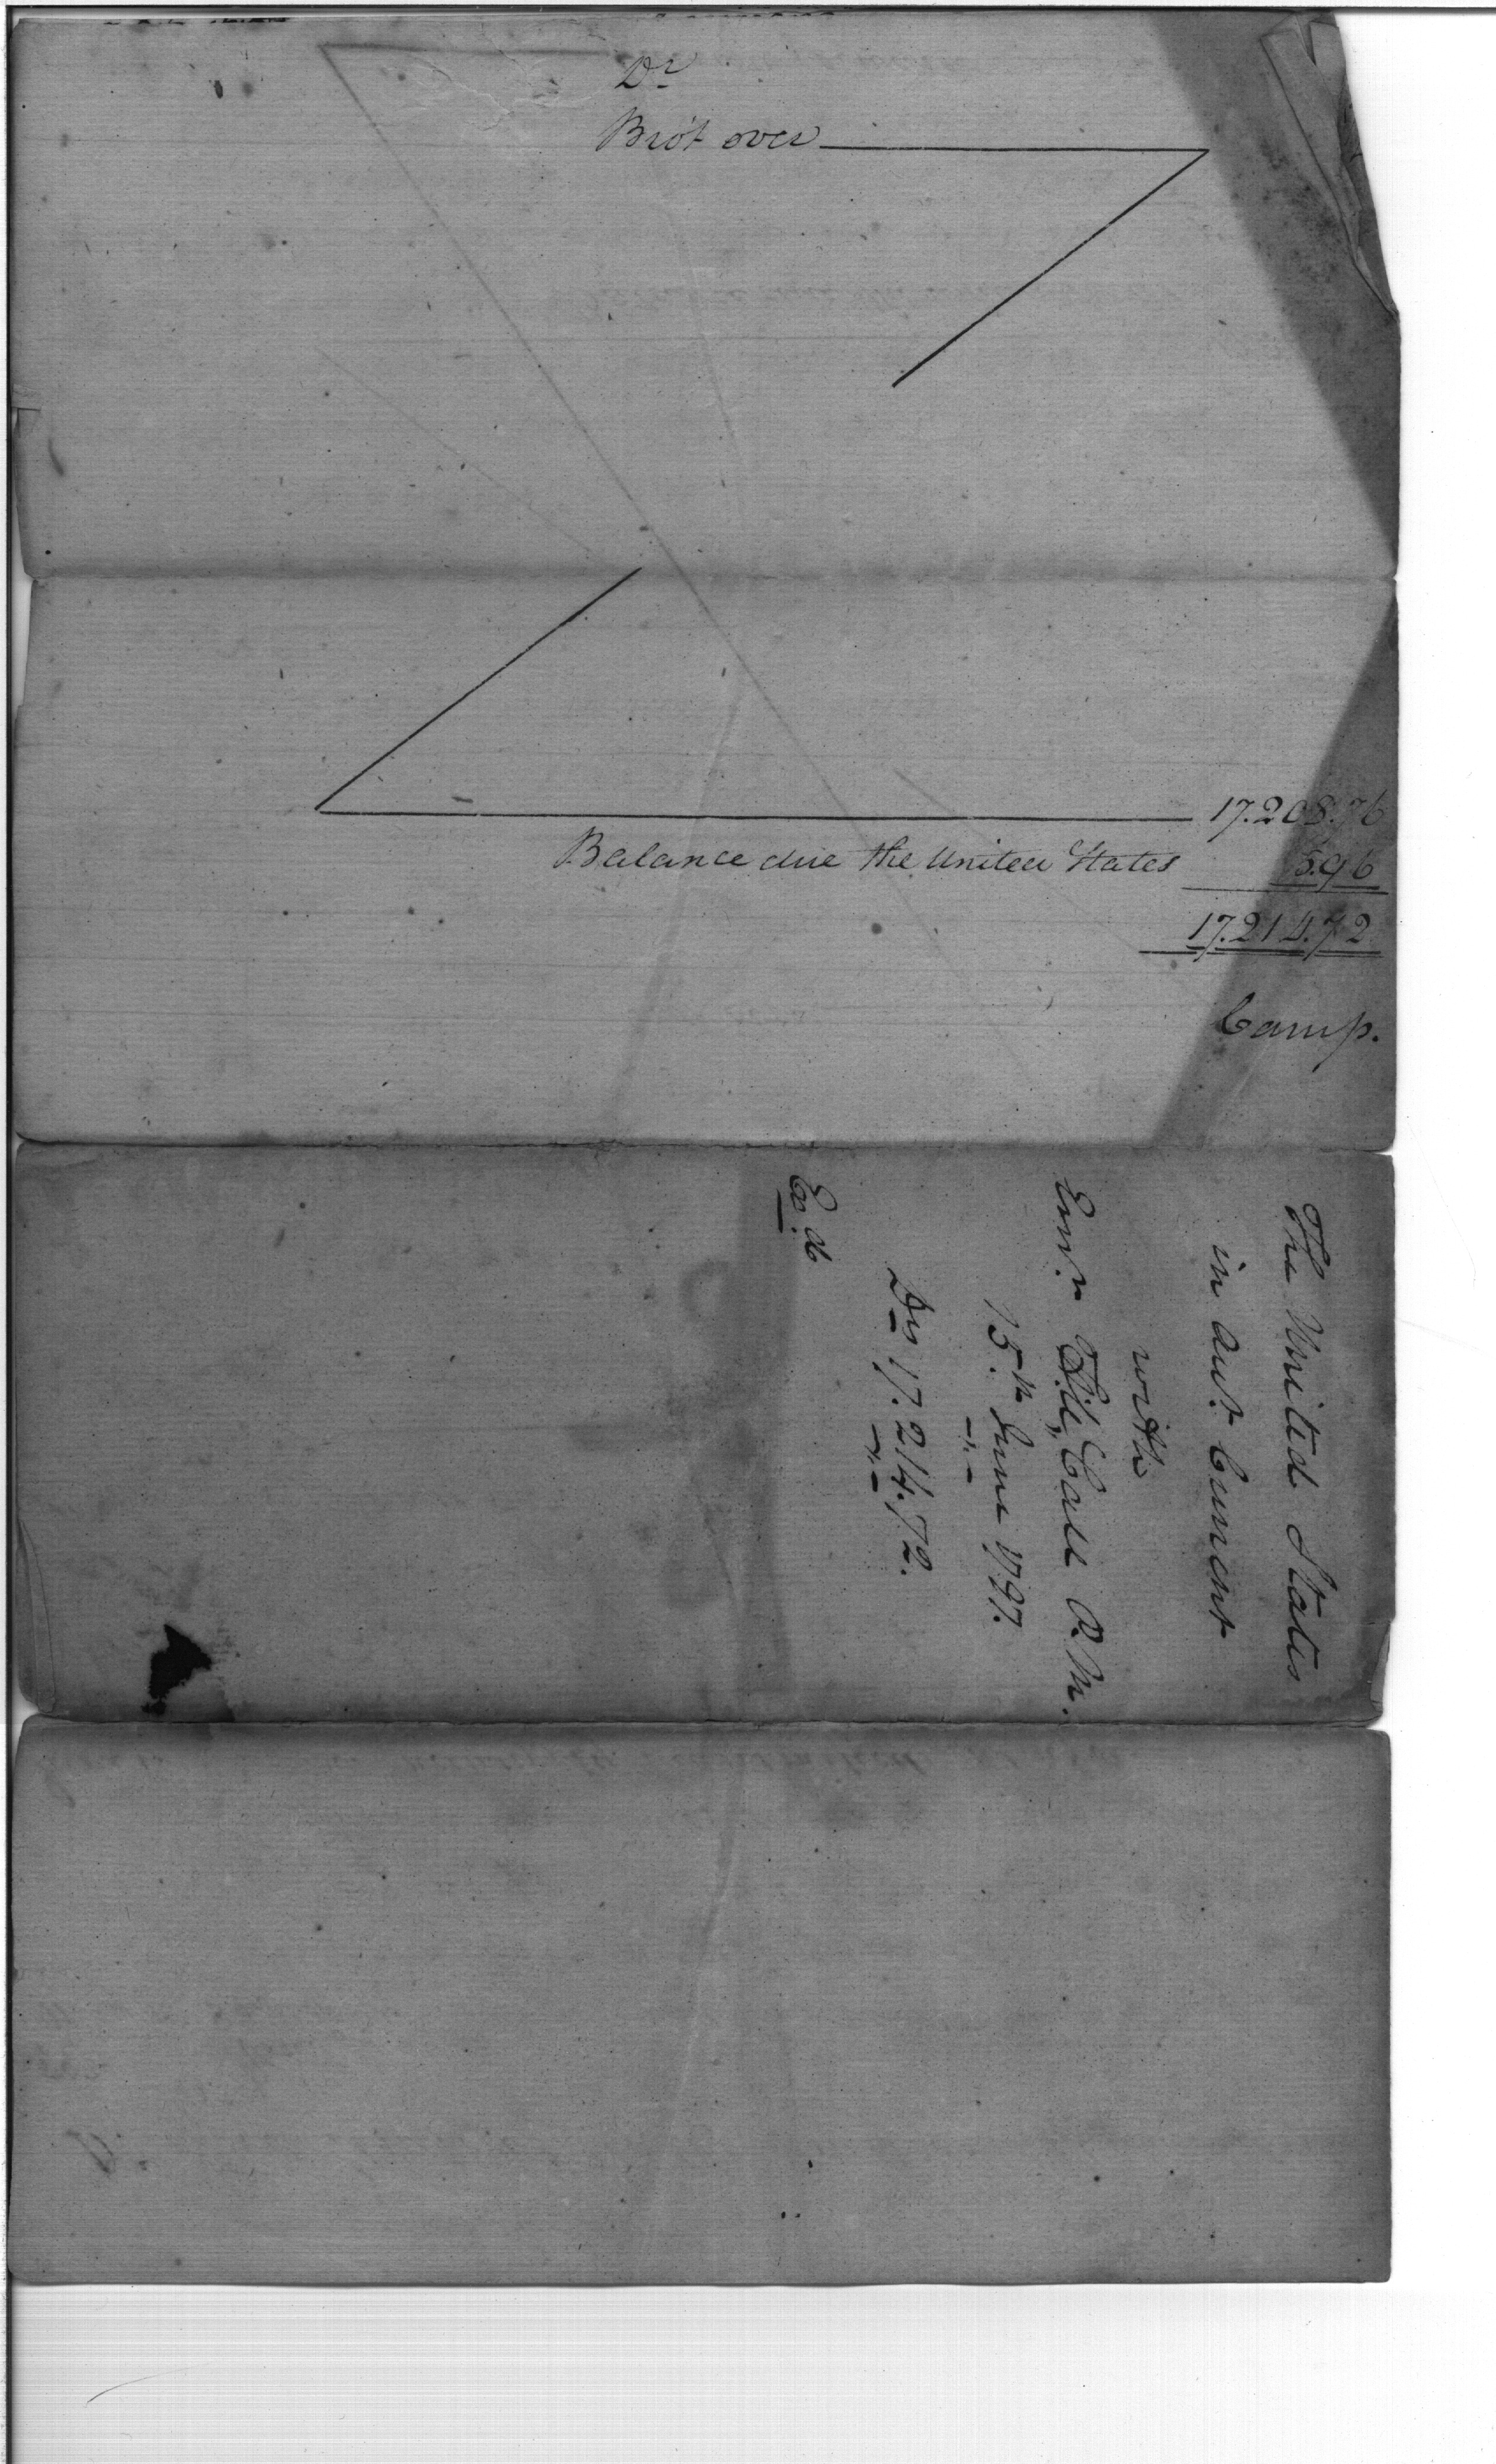 Dr
Bro't over
17.208.76
Balance due the United States 5.96
17.214.72
Camp.
The United States
in acct. Current
with
Edwd. Call P. M.
15th June 1797.
Drs 17.214.72.
Exd